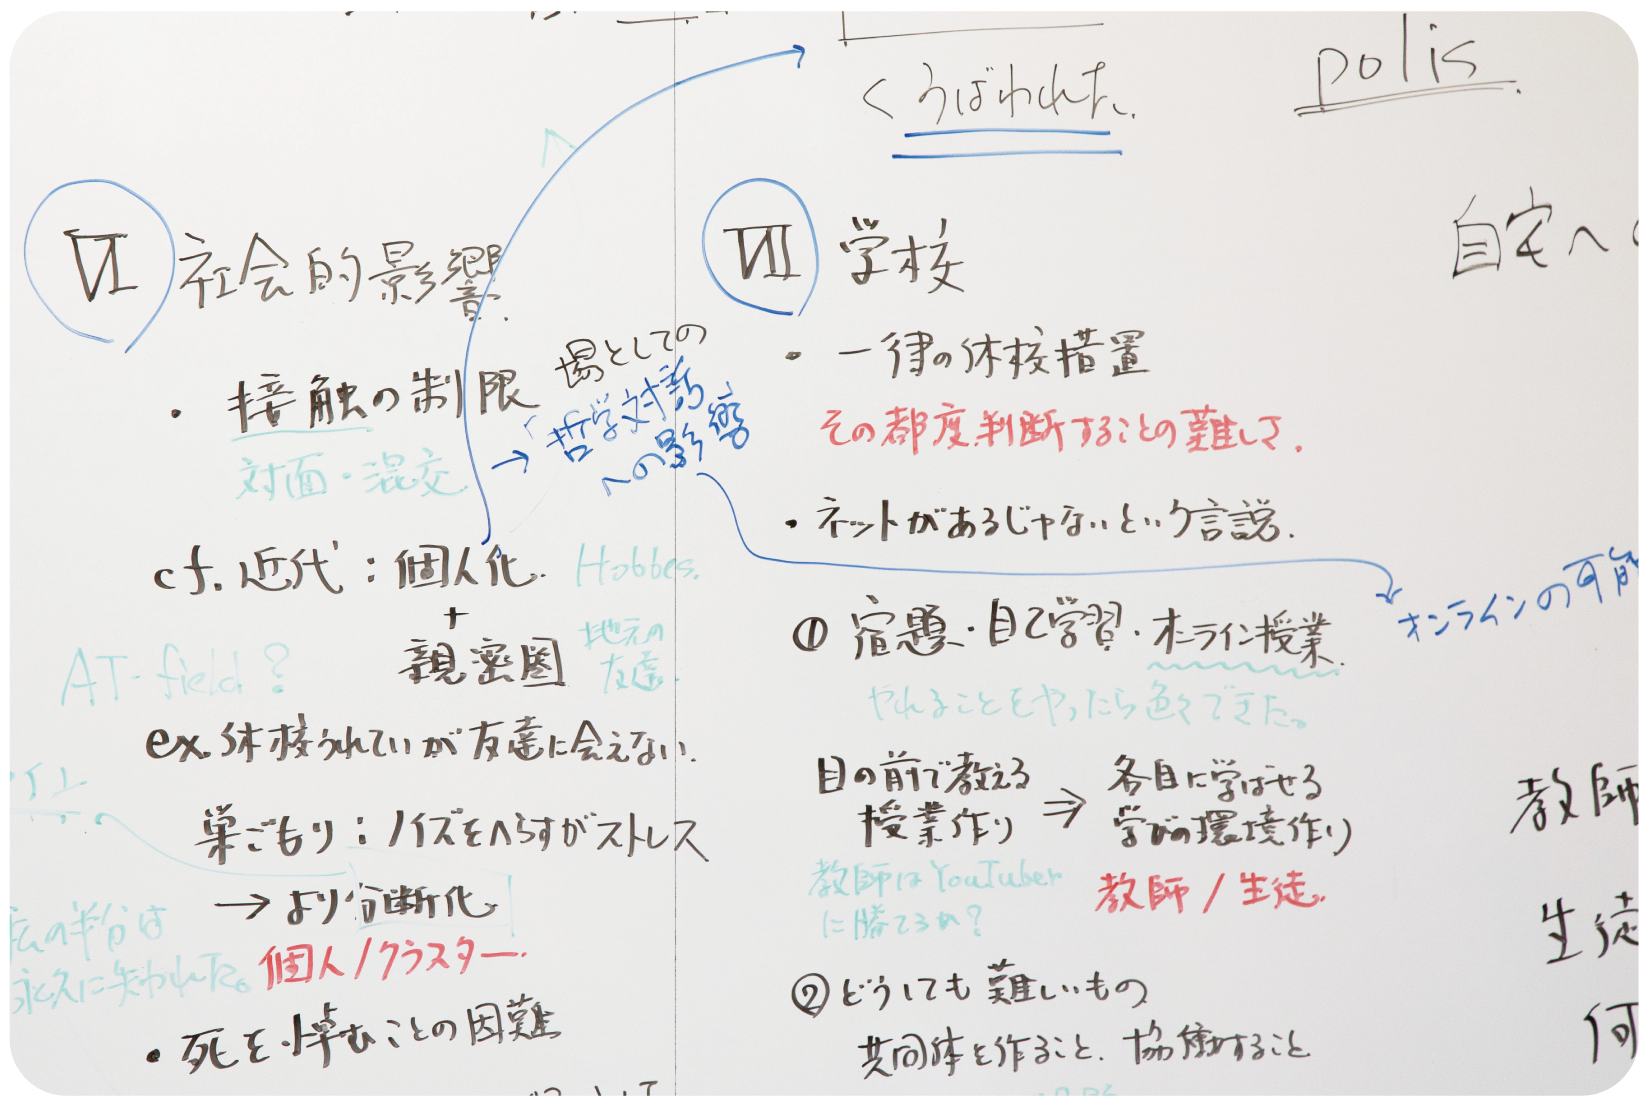 polis
Ⅵ 社会的影響
・接触の制限
対面・混交
場としての
「哲学対話」
への影響
cf. 近代：個人化 Hobbes.
+
親密圏
地元の
友達
AT-field?
ex. 休校うれしいが友達に会えない.
巣ごもり：ノイズをへらすがストレス
→より分断化
個人/クラスター.
の半分は
永久に失われた。
・死を悼むことの困難
Ⅶ 学校
・一律の休校措置
その都度判断することの難しさ.
・ネットがあるじゃないという言説.
オンラインの可能
① 宿題・自己学習・オンライン授業.
やれることをやったら色々できた。
目の前で教える
授業作り
⇒
各自に学ばせる
学びの環境作り
教師はYouTuber
に勝てるか?
教師/生徒.
② どうしても難しいもの
共同体を作ること、協働すること
自宅へ
教師
生徒
何